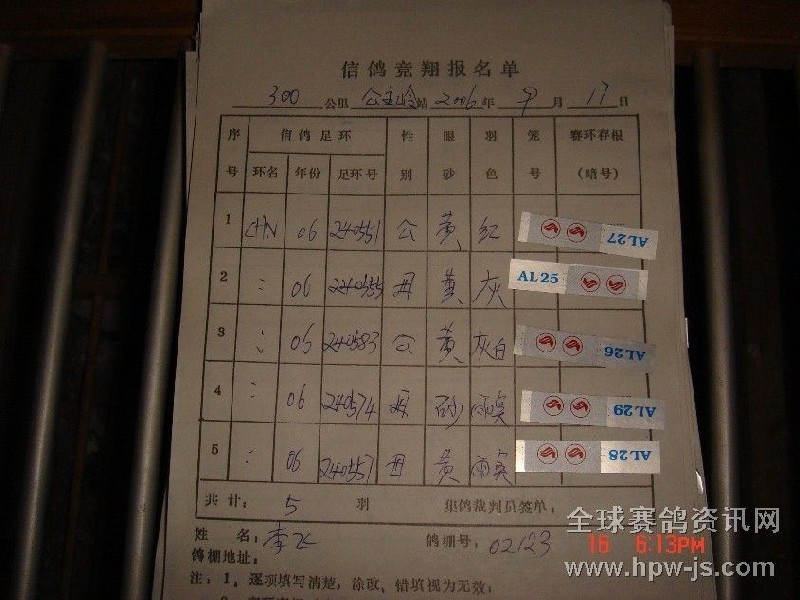 信鸽竞翔报名单
300 公里 公主岭站 2006年 9月 17日
序号 信鸽足环 性别 眼砂 羽色 笼号 赛环存根(暗号)
环名 年份 足环号
1 CHN 06 240551 公 黄 红 AL27
2 : 06 240555 母 黄 灰 AL25
3 : 06 240583 公 黄 灰白 AL26
4 : 06 240574 母 砂 雨 AL29
5 : 06 240557 母 黄 雨 AL28
共计: 5 羽 集鸽裁判员签单:
姓名: 李 鸽棚号: 02123
鸽棚地址:
注:1、逐项填写清楚,涂改、错填视为无效;
16 6:13PM
全球赛鸽资讯网
www.hpw-js.com